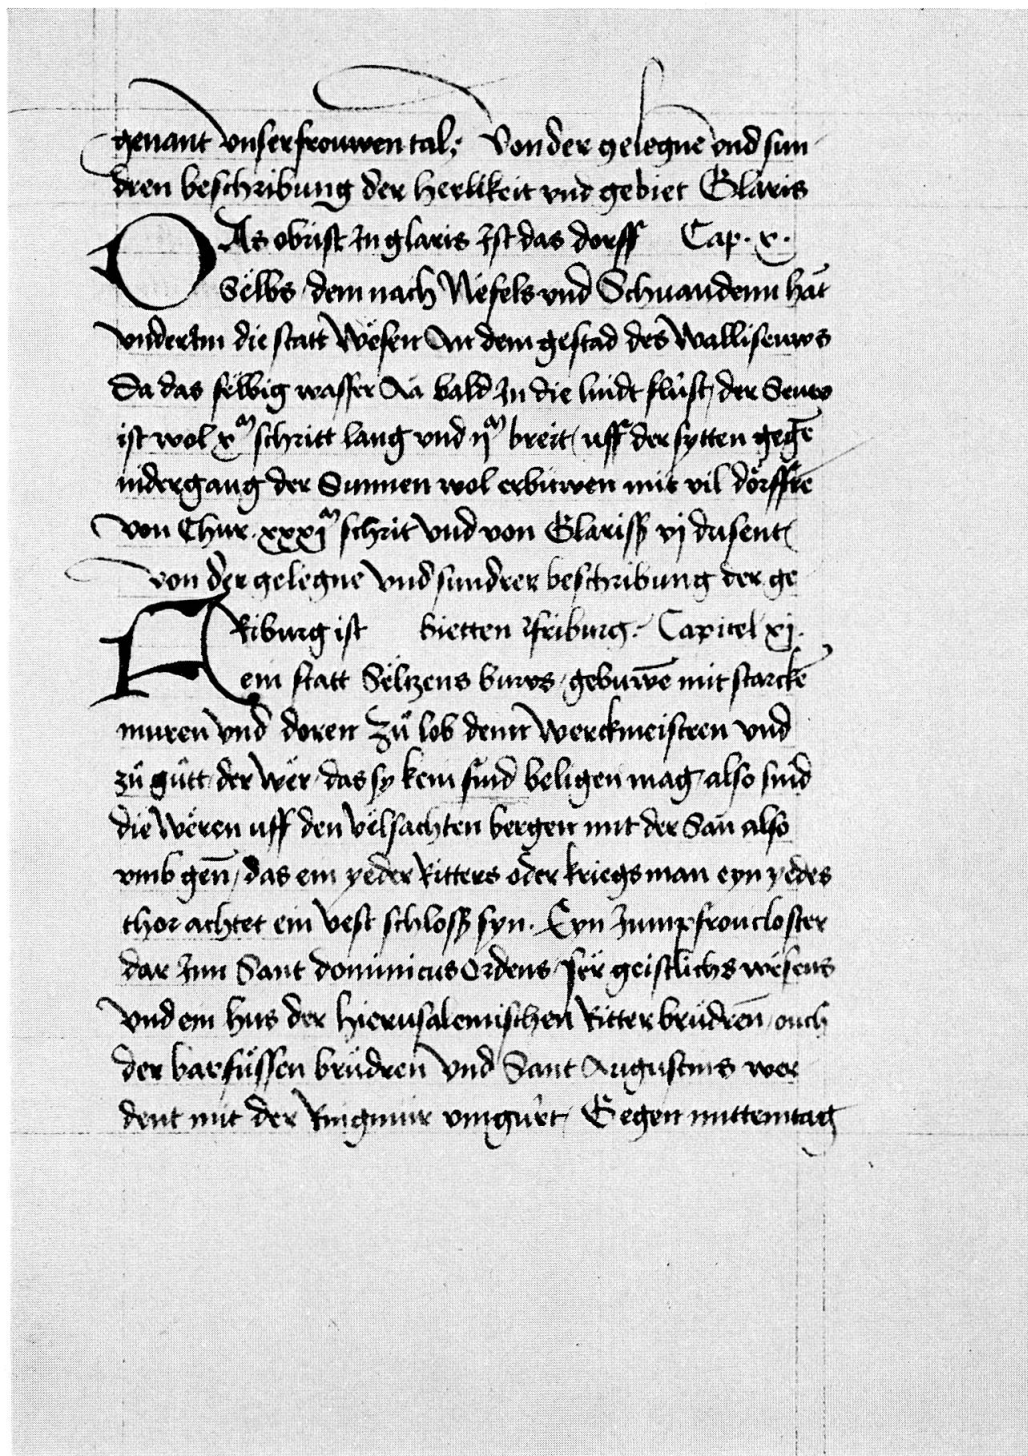 genant vnser frouwen tal; Von der gelegne vnd sun
dren beschribung der herlikeit vnd gebiet Glaris
DAs obrist In glaris Ist das dorff Cap. x.
Selbs / dem nach Nefels vnd Schuandenn hat
vnderIm die statt Wesen An dem gestad des Wallisewvs
Da das selbig wasser Aa bald In die lindt flust / der Sewv
ist wol xᵐ schritt lang vnd ijᵐ breit / uff der sytten gegē
nidergang der Sunnen wol erbuwen mit vil dörfferē
von Chur . xxxijᵐ schrit vnd von Glariss vj dusent /
von der gelegne vnd sundrer beschribung der ge
FRiburg ist bietten Friburg. Capitel xj.
ein statt Seltzens buws / gebuwē mit starckē
muren vnd doren Zů lob denn werckmeistren vnd
zů gůtt der wer / das sy kein find beligen mag / also sind
die weren uff den velsachten bergen mit der San also
vmb gen̄ / das ein yeder Ritters oder kriegsman eyn yedes
thor achtet ein vest schloss syn. Eyn Jumpfroucloster
dar Inn Sant dominicus Ordens / ser geistlichs wesens
vnd ein hus der hierusalemischen Ritter brüdren̄ / ouch
der barfüssen brüdren vnd Sant Augustins wer
dent mit der Ringmur vmgürt / Gegen mittemtag